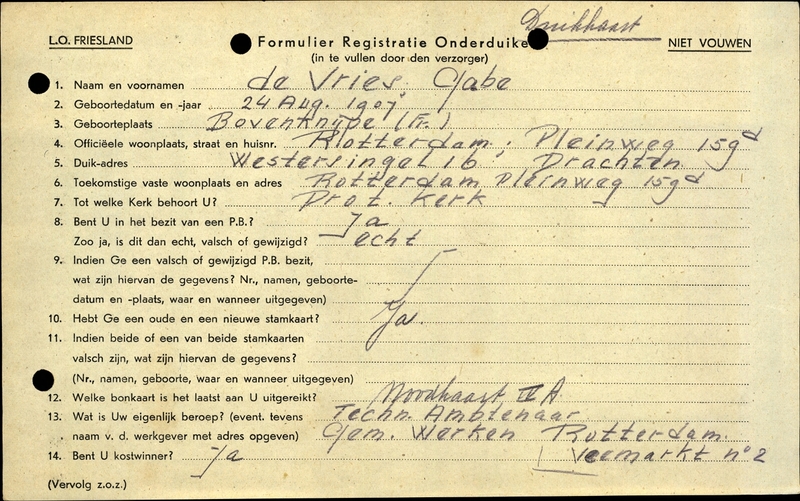 Duikkaart
L.O. FRIESLAND
Formulier Registratie Onderduike
NIET VOUWEN
(in te vullen door den verzorger)
1. Naam en voornamen de Vries, Gabe
2. Geboortedatum en -jaar 24 Aug. 1907
3. Geboorteplaats Bovenknijpe (Fr.)
4. Officiëele woonplaats, straat en huisnr. Rotterdam, Pleinweg 159d
5. Duik-adres Westersingel 16, Drachten
6. Toekomstige vaste woonplaats en adres Rotterdam Pleinweg 159d
7. Tot welke Kerk behoort U? Prot. Kerk
8. Bent U in het bezit van een P.B.? Ja
Zoo ja, is dit dan echt, valsch of gewijzigd? echt
9. Indien Ge een valsch of gewijzigd P.B. bezit,
wat zijn hiervan de gegevens? Nr., namen, geboorte-
datum en -plaats, waar en wanneer uitgegeven)
10. Hebt Ge een oude en een nieuwe stamkaart? Ja.
11. Indien beide of een van beide stamkaarten
valsch zijn, wat zijn hiervan de gegevens?
(Nr., namen, geboorte, waar en wanneer uitgegeven)
12. Welke bonkaart is het laatst aan U uitgereikt? Noodkaart II A
13. Wat is Uw eigenlijk beroep? (event. tevens Techn. Ambtenaar
naam v. d. werkgever met adres opgeven) Gem. Werken Rotterdam.
14. Bent U kostwinner? Ja Veemarkt no 2
(Vervolg z.o.z.)